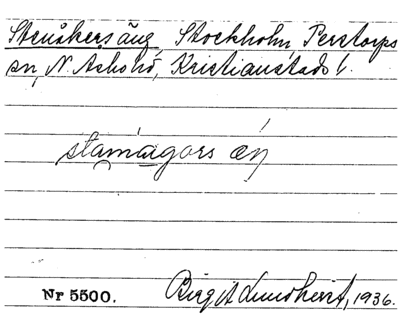 Stenåkersäng, Stockholm, Perstorps
sn, N. Åsbo hd, Kristianstads l.
stamàgors æŋ
Nr 5500. Birgit Lundkvist, 1936.